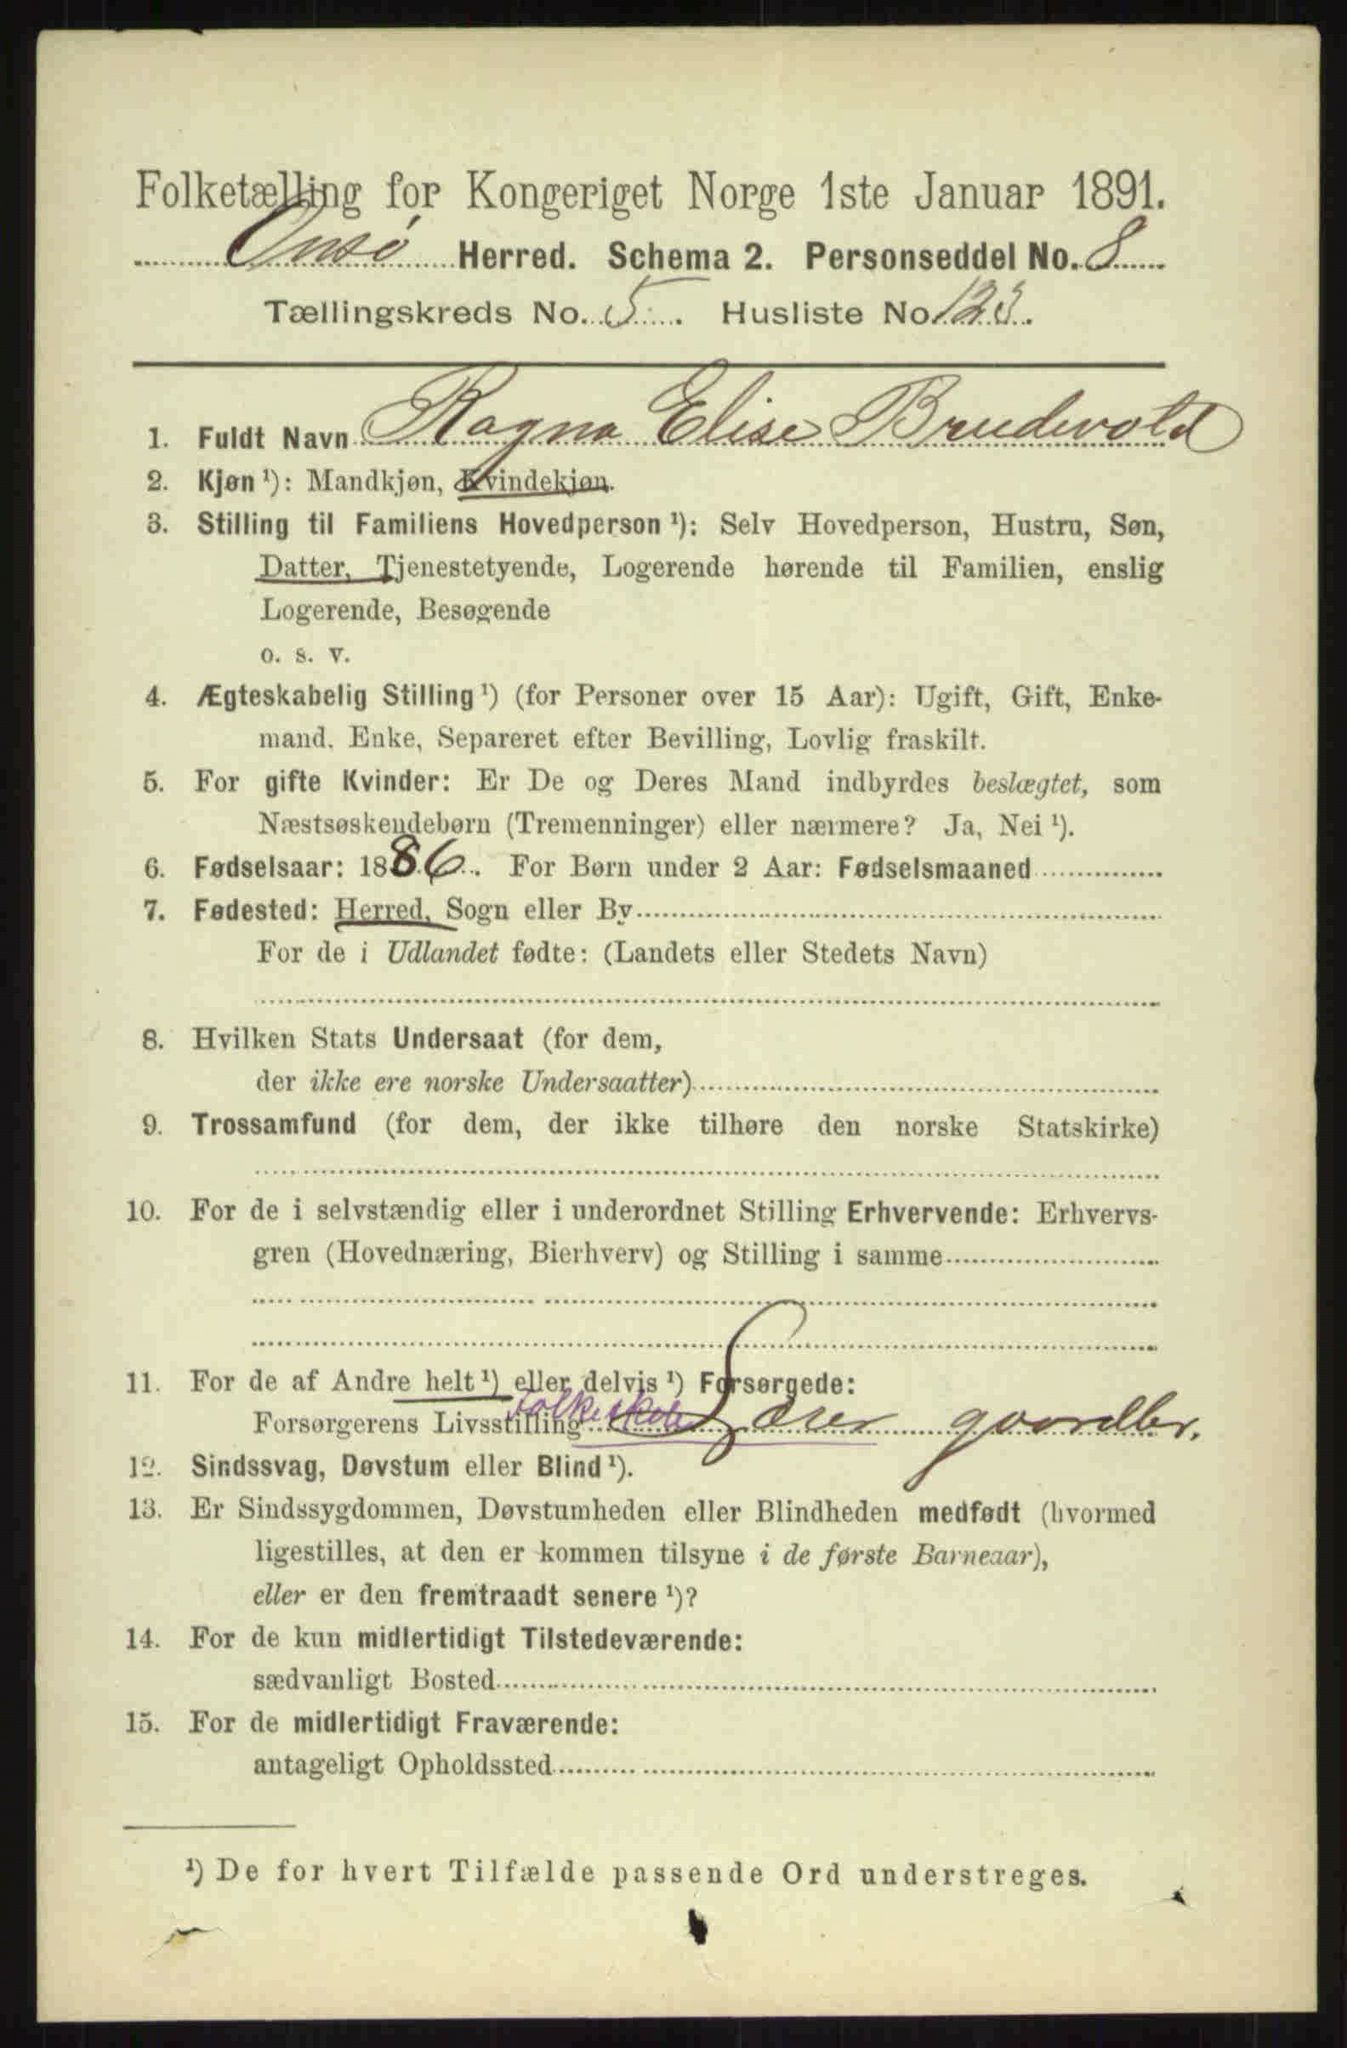 Folketælling for Kongeriget Norge 1ste Januar 1891.
Onsø Herred. Schema 2. Personseddel No. 8
Tællingskreds No. 5. Husliste No 123.
1. Fuldt Navn Ragna Elise Brudevold
2. Kjøn ¹): Mandkjøn, Kvindekjøn.
3. Stilling til Familiens Hovedperson ¹): Selv Hovedperson, Hustru, Søn,
Datter, Tjenestetyende, Logerende hørende til Familien, enslig
Logerende, Besøgende
o. s. v.
4. Ægteskabelig Stilling ¹) (for Personer over 15 Aar): Ugift, Gift, Enke-
mand, Enke, Separeret efter Bevilling, Lovlig fraskilt.
5. For gifte Kvinder: Er De og Deres Mand indbyrdes beslægtet, som
Næstsøskendebørn (Tremenninger) eller nærmere? Ja, Nei ¹).
6. Fødselsaar: 1886. For Børn under 2 Aar: Fødselsmaaned
7. Fødested: Herred, Sogn eller By
For de i Udlandet fødte: (Landets eller Stedets Navn)
8. Hvilken Stats Undersaat (for dem,
der ikke ere norske Undersaatter)
9. Trossamfund (for dem, der ikke tilhøre den norske Statskirke)
10. For de i selvstændig eller i underordnet Stilling Erhvervende: Erhvervs-
gren (Hovednæring, Bierhverv) og Stilling i samme
11. For de af Andre helt ¹) eller delvis ¹) Forsørgede:
Forsørgerens Livsstilling Folkeskole Lærer gaardbr.
12. Sindssvag, Døvstum eller Blind ¹).
13. Er Sindssygdommen, Døvstumheden eller Blindheden medfødt (hvormed
ligestilles, at den er kommen tilsyne i de første Barneaar),
eller er den fremtraadt senere ¹)?
14. For de kun midlertidigt Tilstedeværende:
sædvanligt Bosted
15. For de midlertidigt Fraværende:
antageligt Opholdssted
¹) De for hvert Tilfælde passende Ord understreges.